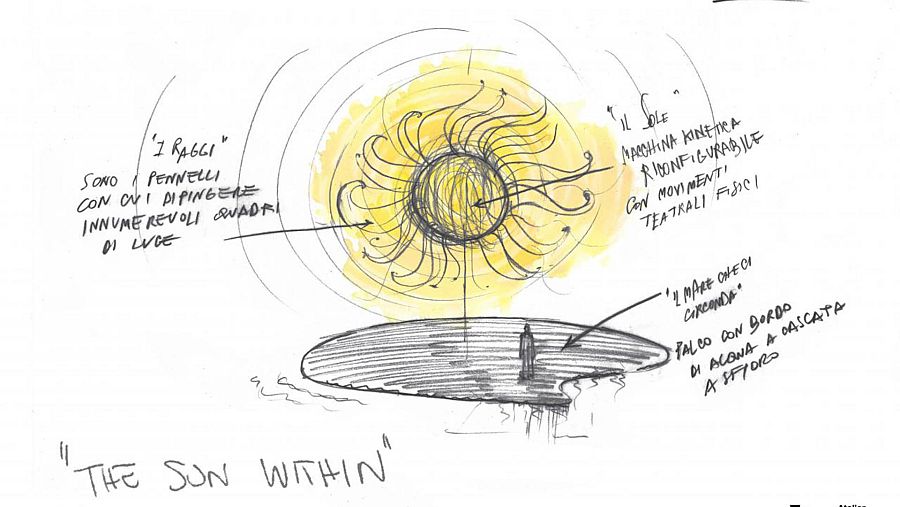 "I RAGGI"
SONO I PENNELLI
CON CUI DIPINGERE
INNUMEREVOLI QUADRI
DI LUCE
"IL SOLE"
MACCHINA KINETICA
RICONFIGURABILE
CON MOVIMENTI
TEATRALI FISICI
"IL MARE CHE CI
CIRCONDA"
PALCO CON BORDO
DI ACQUA A CASCATA
A SFIORO
"THE SUN WITHIN"
Atelier